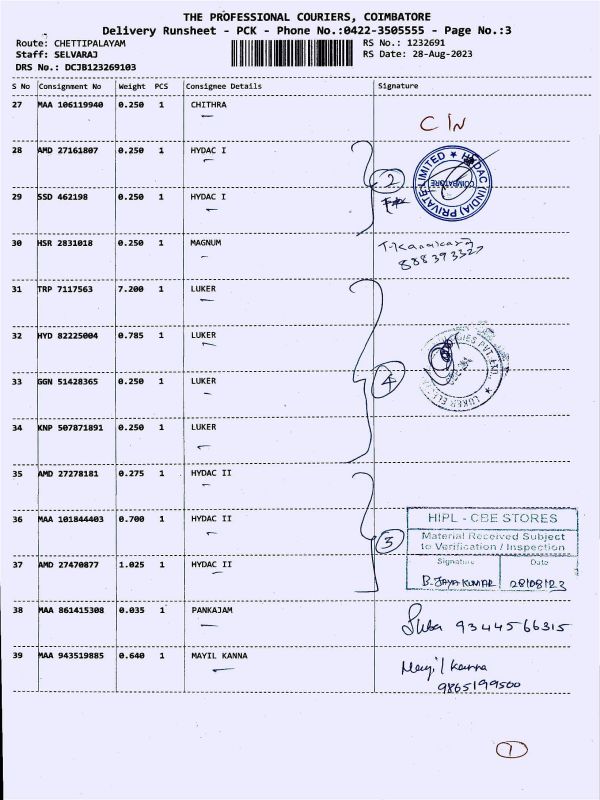 THE PROFESSIONAL COURIERS, COIMBATORE
Delivery Runsheet - PCK - Phone No.:0422-3505555 - Page No.:3
Route: CHETTIPALAYAM RS No.: 1232691
Staff: SELVARAJ RS Date: 28-Aug-2023
DRS No.: DCJB123269103
S No Consignment No Weight PCS Consignee Details Signature
27 MAA 106119940 0.250 1 CHITHRA
28 AMD 27161807 0.250 1 HYDAC I
HYDAC (INDIA) PRIVATE LIMITED
COIMBATORE
2
29 SSD 462198 0.250 1 HYDAC I
30 HSR 2831018 0.250 1 MAGNUM
31 TRP 7117563 7.200 1 LUKER
32 HYD 82225004 0.785 1 LUKER
33 GGN 51428365 0.250 1 LUKER
4
34 KNP 507871891 0.250 1 LUKER
35 AMD 27278181 0.275 1 HYDAC II
36 MAA 101844403 0.700 1 HYDAC II
3
HIPL - CBE STORES
Material Received Subject
to Verification / Inspection
Signature Date
B. JAYAKUMAR 28/08/23
37 AMD 27470877 1.025 1 HYDAC II
38 MAA 861415308 0.035 1 PANKAJAM
Suba 9344566315
39 MAA 943519885 0.640 1 MAYIL KANNA
Mayil Kanna
9865199500
1